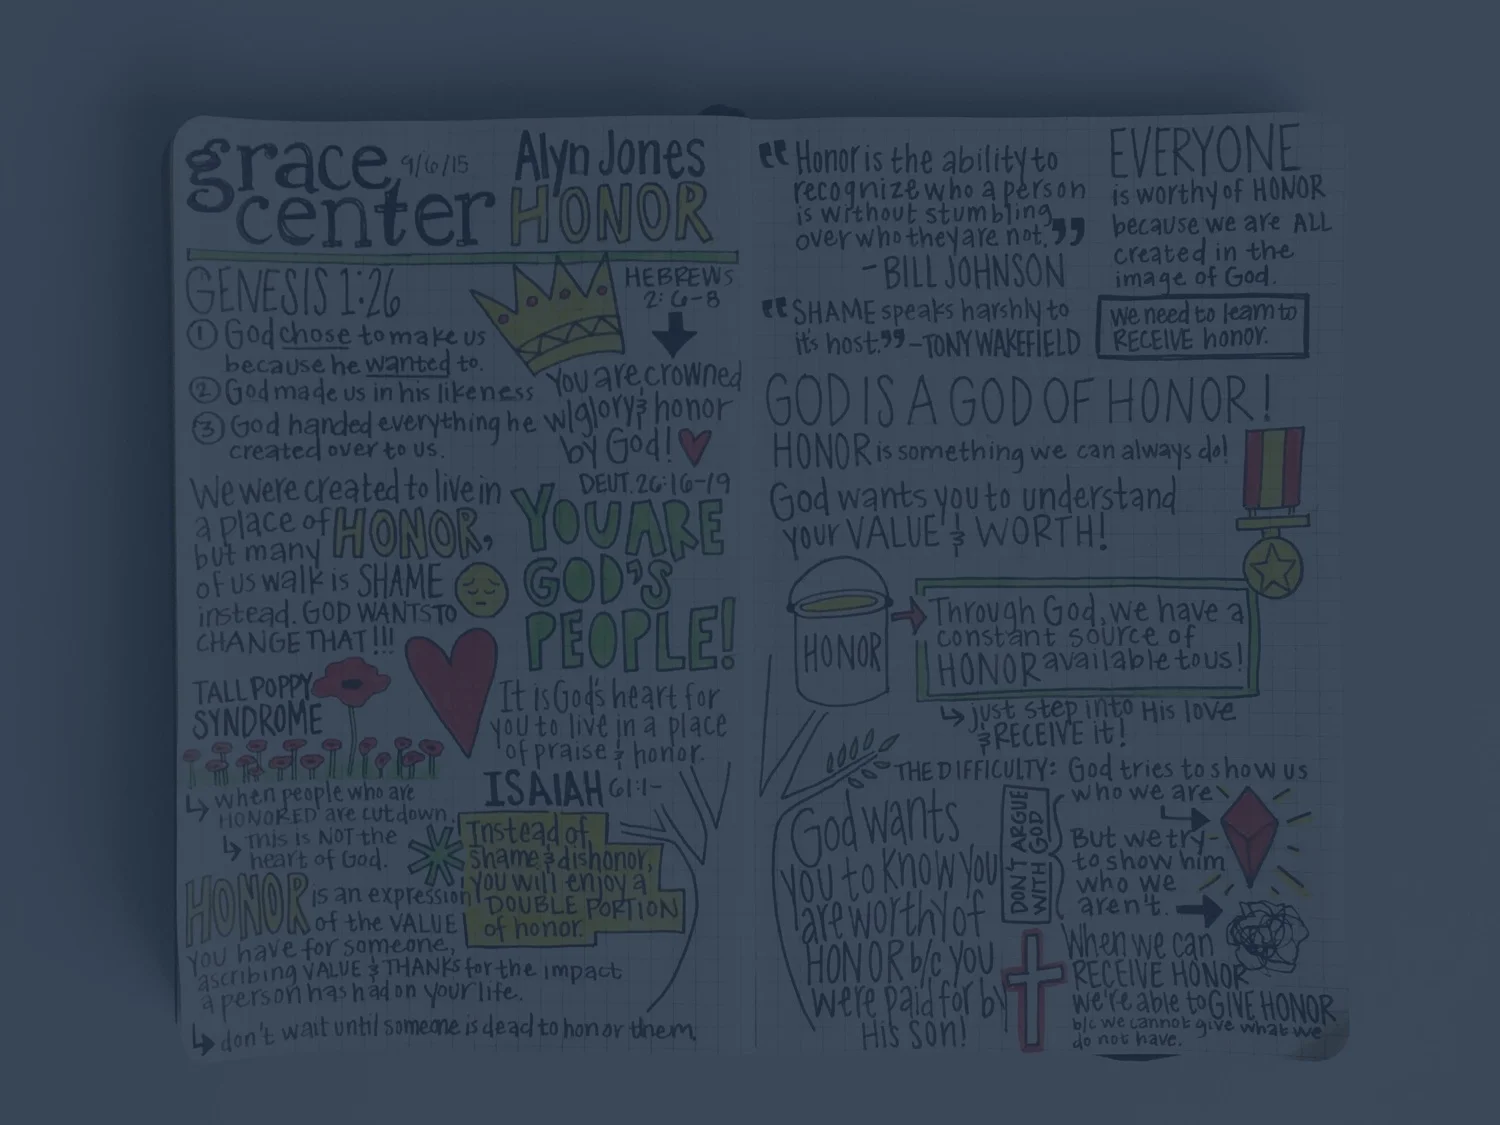 grace center 9/6/15
Alyn Jones
HONOR
GENESIS 1:26
① God chose to make us
because he wanted to.
② God made us in his likeness
③ God handed everything he
created over to us.
HEBREWS
2:6-8
You are crowned
w/glory & honor
by God!
We were created to live in
a place of HONOR,
but many
of us walk is SHAME
instead. GOD WANTS TO
CHANGE THAT!!!
DEUT. 26:16-19
YOU ARE
GOD'S
PEOPLE!
It is God's heart for
you to live in a place
of praise & honor.
TALL POPPY
SYNDROME
↳ when people who are
HONORED are cut down.
↳ This is NOT the
heart of God.
ISAIAH 61:1-
Instead of
shame & dishonor,
you will enjoy a
DOUBLE PORTION
of honor.
HONOR is an expression
of the VALUE
you have for someone,
ascribing VALUE & THANKS for the impact
a person has had on your life.
↳ don't wait until someone is dead to honor them.
"Honor is the ability to
recognize who a person
is without stumbling
over who they are not."
- BILL JOHNSON
"SHAME speaks harshly to
it's host." - TONY WAKEFIELD
EVERYONE
is worthy of HONOR
because we are ALL
created in the
image of God.
We need to learn to
RECEIVE honor.
GOD IS A GOD OF HONOR!
HONOR is something we can always do!
God wants you to understand
your VALUE & WORTH!
HONOR
Through God, we have a
constant source of
HONOR available to us!
↳ just step into His love
& RECEIVE it!
God wants
you to know you
are worthy of
HONOR b/c you
were paid for by
His son!
THE DIFFICULTY: God tries to show us
who we are
DON'T ARGUE
WITH GOD
But we try
to show him
who we
aren't.
When we can
RECEIVE HONOR
we're able to GIVE HONOR
b/c we cannot give what we
do not have.